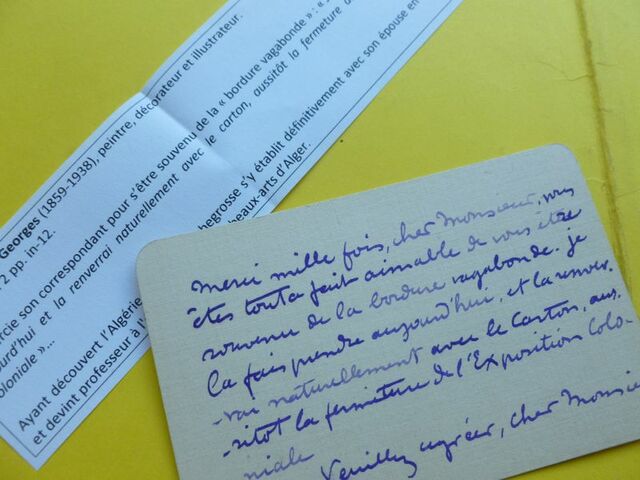 Georges (1859-1938), peintre, décorateur et illustrateur.
2 pp. in-12.
rcie son correspondant pour s'être souvenu de la « bordure vagabonde » : «
urd'hui et la renverrai naturellement avec le carton, aussitôt la fermeture d
oloniale »...
Ayant découvert l'Algérie
begrosse s'y établit définitivement avec son épouse en
et devint professeur à l'
beaux-arts d'Alger.
Merci mille fois, cher Monsieur, vous
êtes tout à fait aimable de vous être
souvenu de la bordure vagabonde. je
la fais prendre aujourd'hui, et la renver
-rai naturellement avec le Carton, aus
-sitôt la fermeture de l'Exposition Colo-
niale
Veuillez agréer, cher Monsie